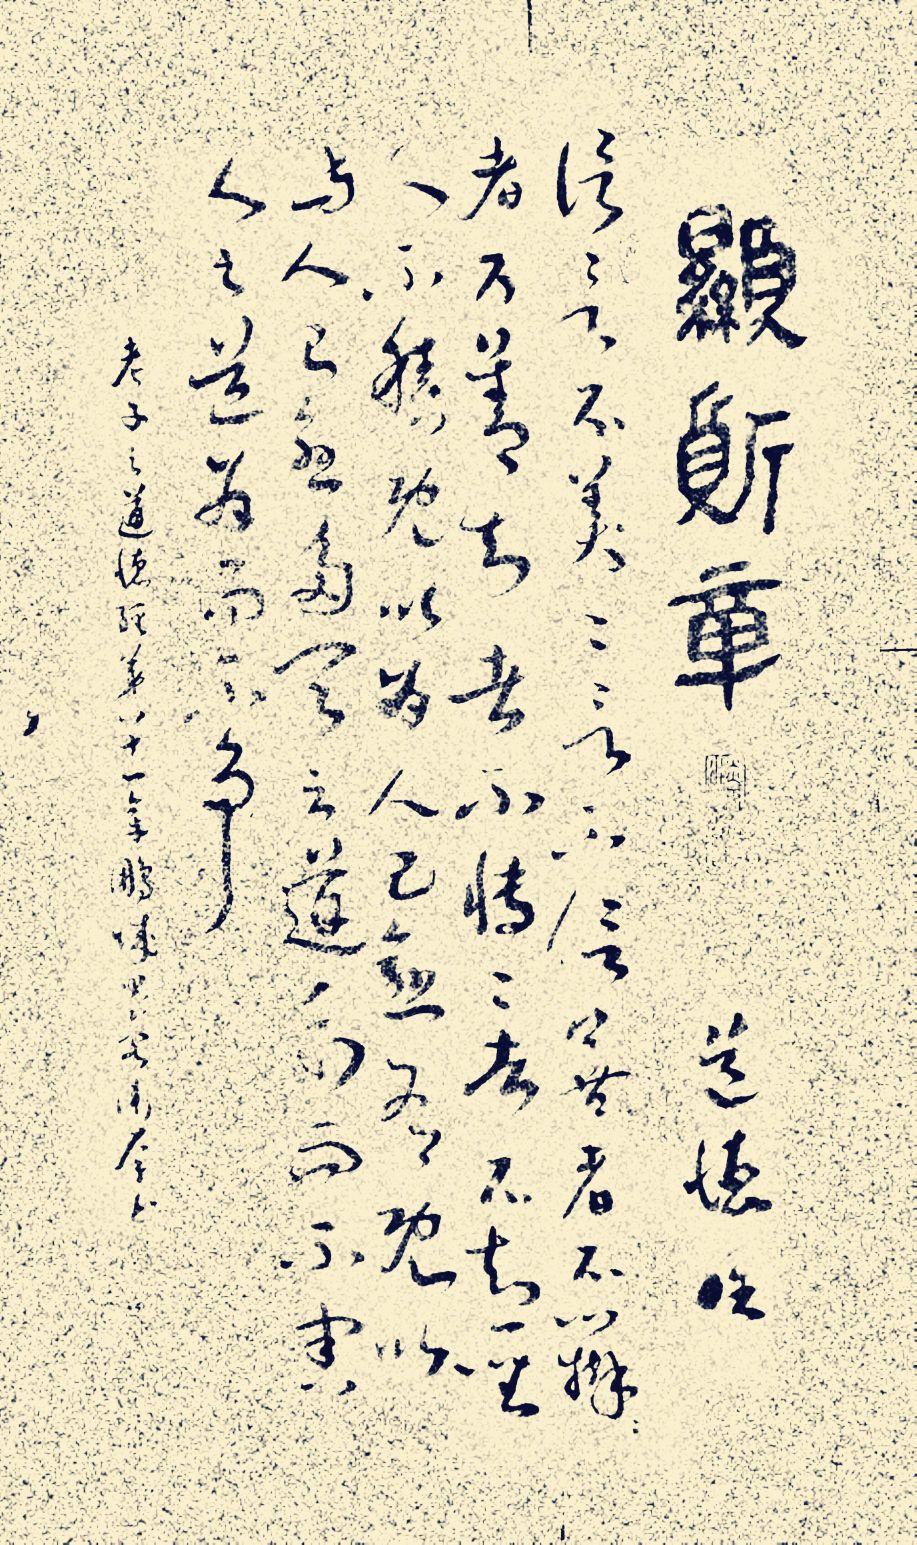 顯質章
道德經
信言不美〻〻言不信善者不辯〻
者不善知者不博〻者不知聖
人不積既以為人己愈有既以
与人己愈多天之道利而而不害
人之道為而不争
老子之道德經第八十一章鵬城